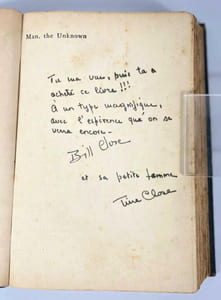 Man, the Unknown
Tu ma vue, puis ta a
acheté ce livre!!!
À un type magnifique,
avec l'espérence qu'on se
verra encore-
Bill Close
et sa petite femme
Tine Close